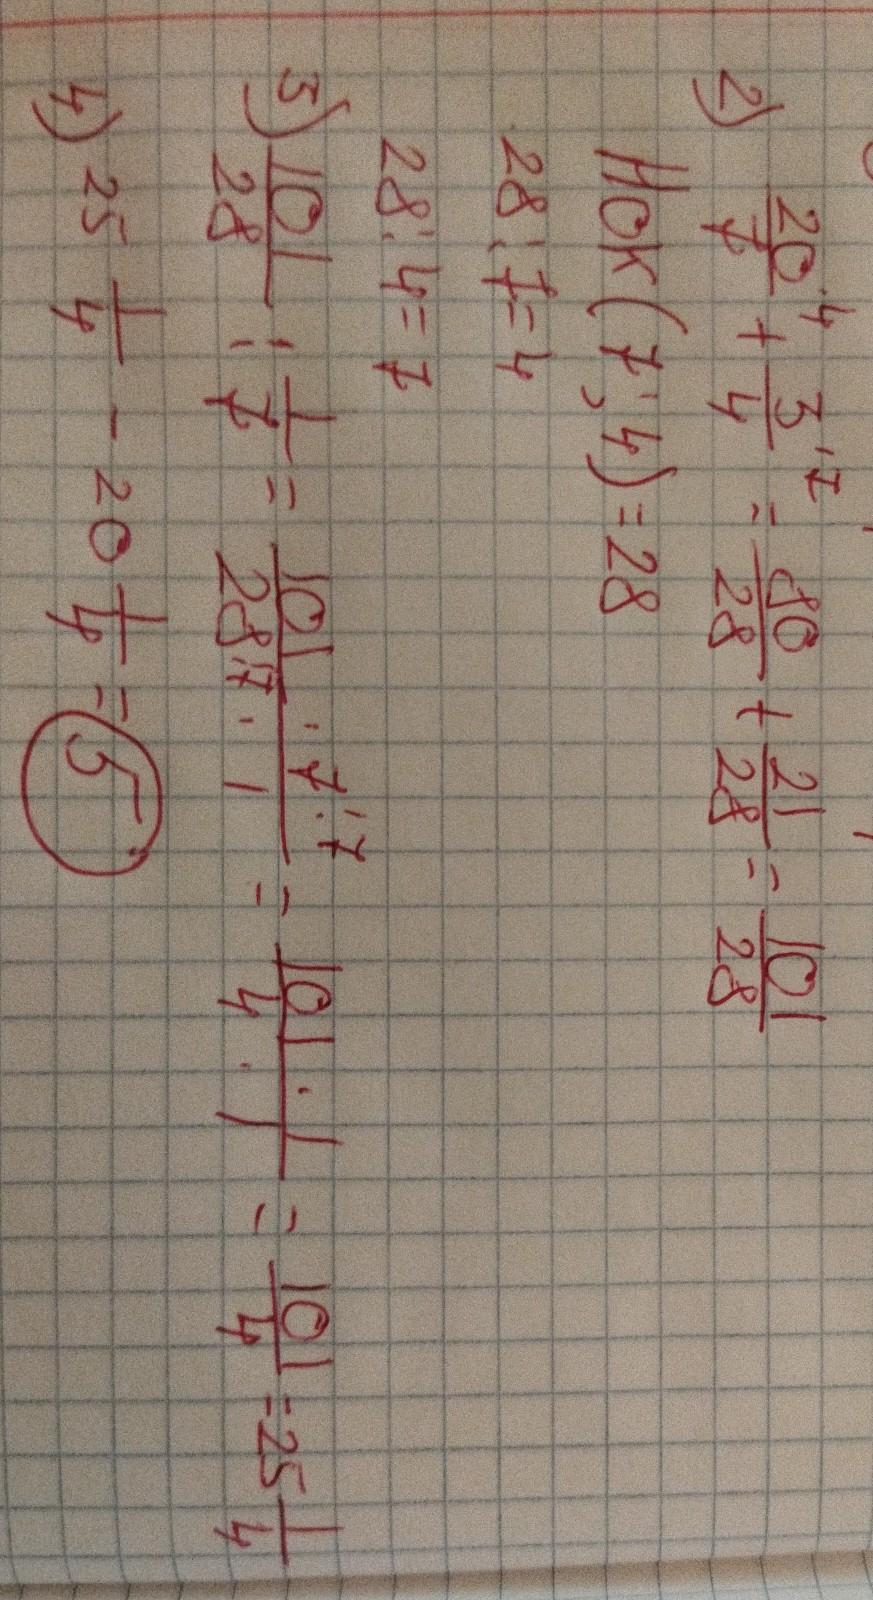 2) 20/7 ·4 + 3/4 ·7 = 80/28 + 21/28 = 101/28
НОК(7;4)=28
28:7=4
28:4=7
3) 101/28 : 1/7 = 101·7:7/28:7·1 = 101·1/4·1 = 101/4 = 25 1/4
4) 25 1/4 - 20 1/4 = 5